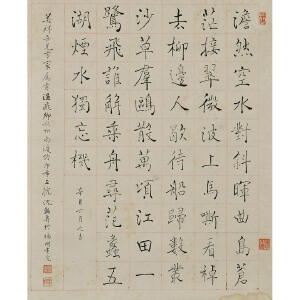 澹然空水對斜暉曲島蒼
茫接翠微波上馬嘶看棹
去柳邊人歇待船歸數叢
沙草羣鷗散萬頃江田一
鷺飛誰解乘舟尋范蠡五
湖煙水獨忘機
溫飛卿利州南渡